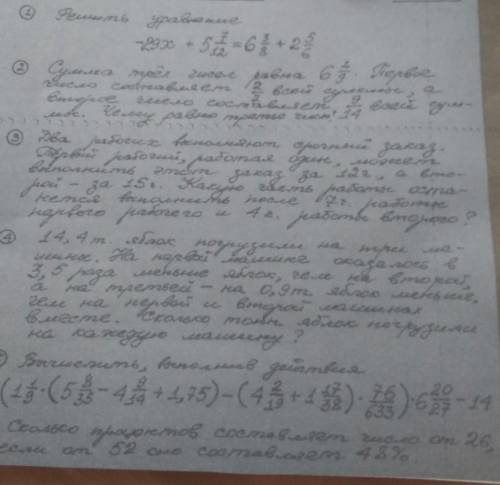 ① Решить уравнение
-29x + 5 7/12 = 6 3/8 + 2 5/6
② Сумма трёх чисел равна 6 1/9. Первое
число составляет всей суммы, а
второе число составляет 9/14 всей сум-
мы. Чему равно третье
③ Два рабочих выполняют срочный заказ.
Первый рабочий, работая один, может
выполнить этот заказ за 12ч, а вто-
рой – за 15ч. Какую часть работы оста-
нется выполнить после 7ч. работы
первого рабочего и 4ч. работы второго?
④ 14,4 т. яблок погрузили на три ма-
шины. На первой машине оказалось в
3,5 раза меньше яблок, чем на второй,
а на третьей – на 0,9т яблок меньше,
чем на первой и второй машинах
вместе. Сколько тонн яблок погрузили
на каждую машину?
Вычислить, выполнив действия
(1 1/9 · (5 8/35 - 4 9/14 + 1,75) - (4 2/19 + 1 17/38) · 76/633) · 6 20/27 - 14
Сколько процентов составляет число от 26,
если от 52 оно составляет 48%.